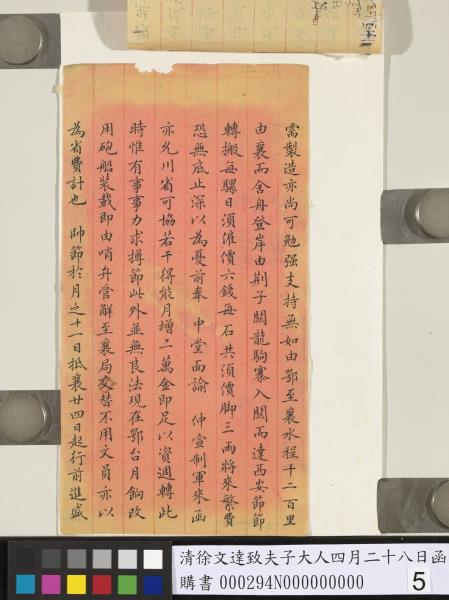 需製造亦尚可勉强支持無如由鄂至襄水程千二百里
由襄而舍舟登岸由荆子關龍駒寨入關而達西安節節
轉搬每騾日須僱價六錢每石共須價脚三兩將來繁費
恐無底止深以為憂前奉 中堂面諭 仲宣制軍來函
亦允川省可協若干得能月增二萬金即足以資週轉此
時惟有事事力求撙節此外並無良法現在鄂台月餉改
用砲船裝載即由哨弁管解至襄局交替不用文員亦以
為省費計也 帥節於月之十一日抵襄廿四日起行前進盛
清徐文達致夫子大人四月二十八日函
購書 000294N000000000
5